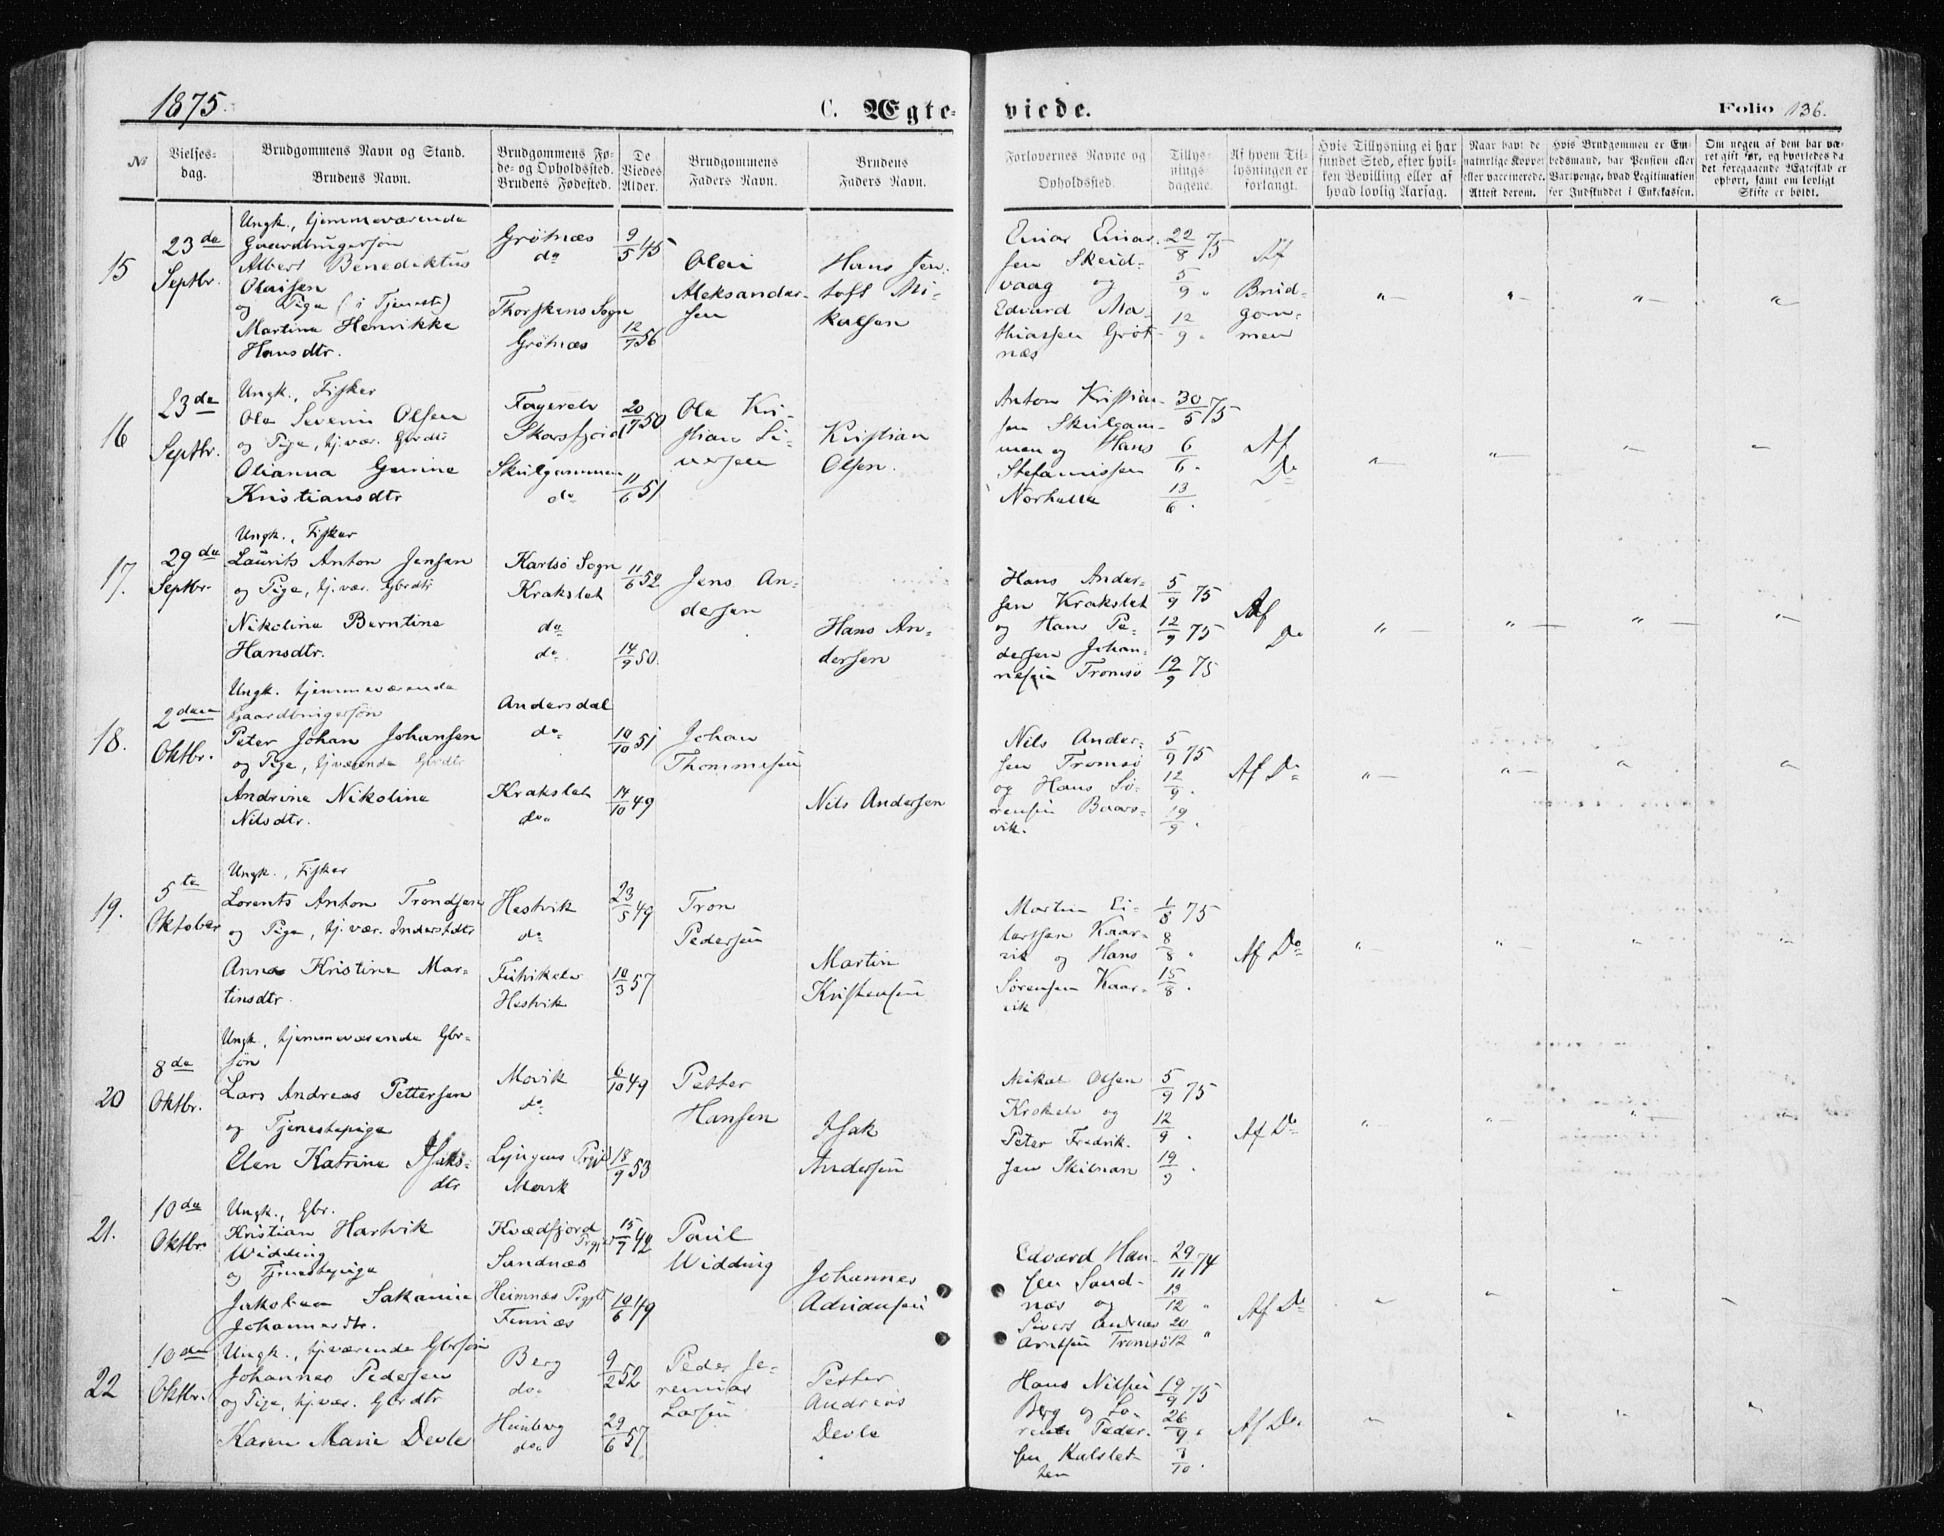 1875.
C. Ægte-
viede.
Folio 136.
No
Vielses-
dag.
Brudgommens Navn og Stand.
Brudens Navn.
Brudgommens Fø-
de- og Opholdssted.
Brudens Fødested.
De
Viedes
Alder.
Brudgommens
Faders Navn.
Brudens
Faders Navn.
Forlovernes Navne og
Opholdssted.
Tillys-
nings-
dagene.
Af hvem Til-
lysningen er
forlangt.
Hvis Tillysning ei har
fundet Sted, efter hvil-
ken Bevilling eller af
hvad lovlig Aarsag.
Naar havt de
naturlige Kopper
eller vaccinerede.
Attest derom.
Hvis Brudgommen er Em-
bedsmand, har Pension eller
Vartpenge, hvad Legitimation
for Indskuddet i Enkekassen.
Om nogen af dem har væ-
ret gift før, og hvorledes da
det foregaaende Ægteskab er
ophørt, samt om lovligt
Skifte er holdt.
15
23de
Septbr.
Ungk., hjemmeværende
Gaardbrugersøn
Albert Benediktus
Olaisen
og Pige (i Tjeneste)
Martine Henrikke
Hansdtr.
Grøtnæs
do
Thorskens Sogn
Grøtnæs
9/5 45
12/7 56
Olai
Aleksander-
sen
Hans Jen-
toft Mi-
kalsen
Einar Einar-
sen Skeid-
vaag og
Edvard Ma-
thiassen Grøt-
næs
22/8 75
5/9 "
12/9 "
Af
Brud-
gom-
men
16
23de
Septbr.
Ungk., Fisker
Ole Severin Olsen
og Pige, hj.vær. Gbrdtr
Olianna Gurine
Kristiansdtr
Skarsfjord
Skulgammen
do
20/7 50
11/6 51
Ole Kri-
stian Si-
versen
Kristian
Olsen.
Anton Kristian-
sen Skulgam-
men og Hans
Stefanussen
30/5 75
6/6 "
13/6 "
Af
Do
17.
29de
Septbr.
Ungk., Fisker
Laurits Anton Jensen
og Pige, hj.vær. Gbrdtr
Nikoline Berntine
Hansdtr.
Karlsø Sogn
Krakslet
do
do
11/6 52
14/9 50.
Jens An-
dersen
Hans An-
dersen
Hans Ander-
sen Krakslet
og Hans Pe-
dersen Johan-
nesen Tromsø
5/9 75
12/9 75
12/9 75
Af
Do
18.
2den
Oktbr.
Ungk. hjemmeværende
Gaardbrugersøn
Peter Johan Johansen
og Pige, hj.værende Gbrdtr
Andrine Nikoline
Nilsdtr.
Andersdal
do
Krakslet
do
10/10 51
14/10 49
Johan
Thommesen
Nils Andersen
Nils Ander-
sen Tromsø
og Hans Sø-
rensen Baars-
vik.
5/9 75
12/9 "
19/9 "
Af Do
19.
5te
Oktober
Ungk., Fisker
Lorents Anton Trondsen
og Pige, hj.vær. Inderstdtr
Anna Kristine Mar-
tinsdtr.
Hestvik
do
Hestvik
23/5 49
10/3 57
Tron
Pedersen
Martin
Kristensen
Martin Ei-
lertsen Kaar-
vik og Hans
Sørensen Kaar-
vik
1/8 75
8/8 "
15/8 "
Af Do
20
8de
Oktbr.
Ungk., hjemmeværende Gbr-
søn
Lars Andreas Pettersen
og Tjenestepige
Elen Katrine Isaks-
dtr
Movik
do
Lyngens Prgjld
Movik
6/10 49
18/9 53
Petter
Hansen
Isak
Andersen
Mikal Olsen
og
Peter Fredrik-
sen Skilnan
5/9 75
12/9 "
19/9 "
Af Do
21.
10de
Oktbr.
Ungk., Gbr.
Kristian Hartvik
Widding
og Tjenestepige
Jakobine Sakarine
Johannesdtr.
Kvædfjord
Prgjld
Sandnæs
Finnæs
15/9 42
10/6 49
Paul
Widding
Johannes
Adriansen
Edvard Han-
sen Sand-
næs og
Sivert Andreas
Arntsen Tromsø
29/11 74
13/12 "
20/12 "
Af Do
22
10de
Oktbr.
Ungk., hj.værende Gbrsøn
Johannes Pedersen
og Pige, hj.vær. Gbrdtr
Karen Marie Devle
Berg
do
do
9/2 52
29/6 57
Peder Je-
remias
Larsen
Petter
Andreas
Devle
Hans Nilsen
Berg og Lo-
rents Peder-
sen Kalslet-
ten
19/9 75
26/9 "
3/10 "
Af Do